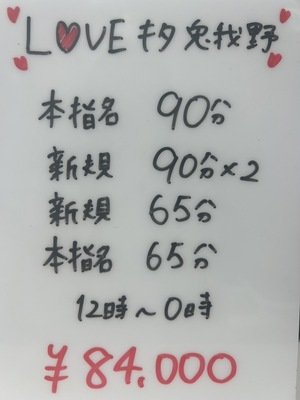 LOVE キタ兎我野
本指名 90分
新規 90分×2
新規 65分
本指名 65分
12時～0時
¥84.000